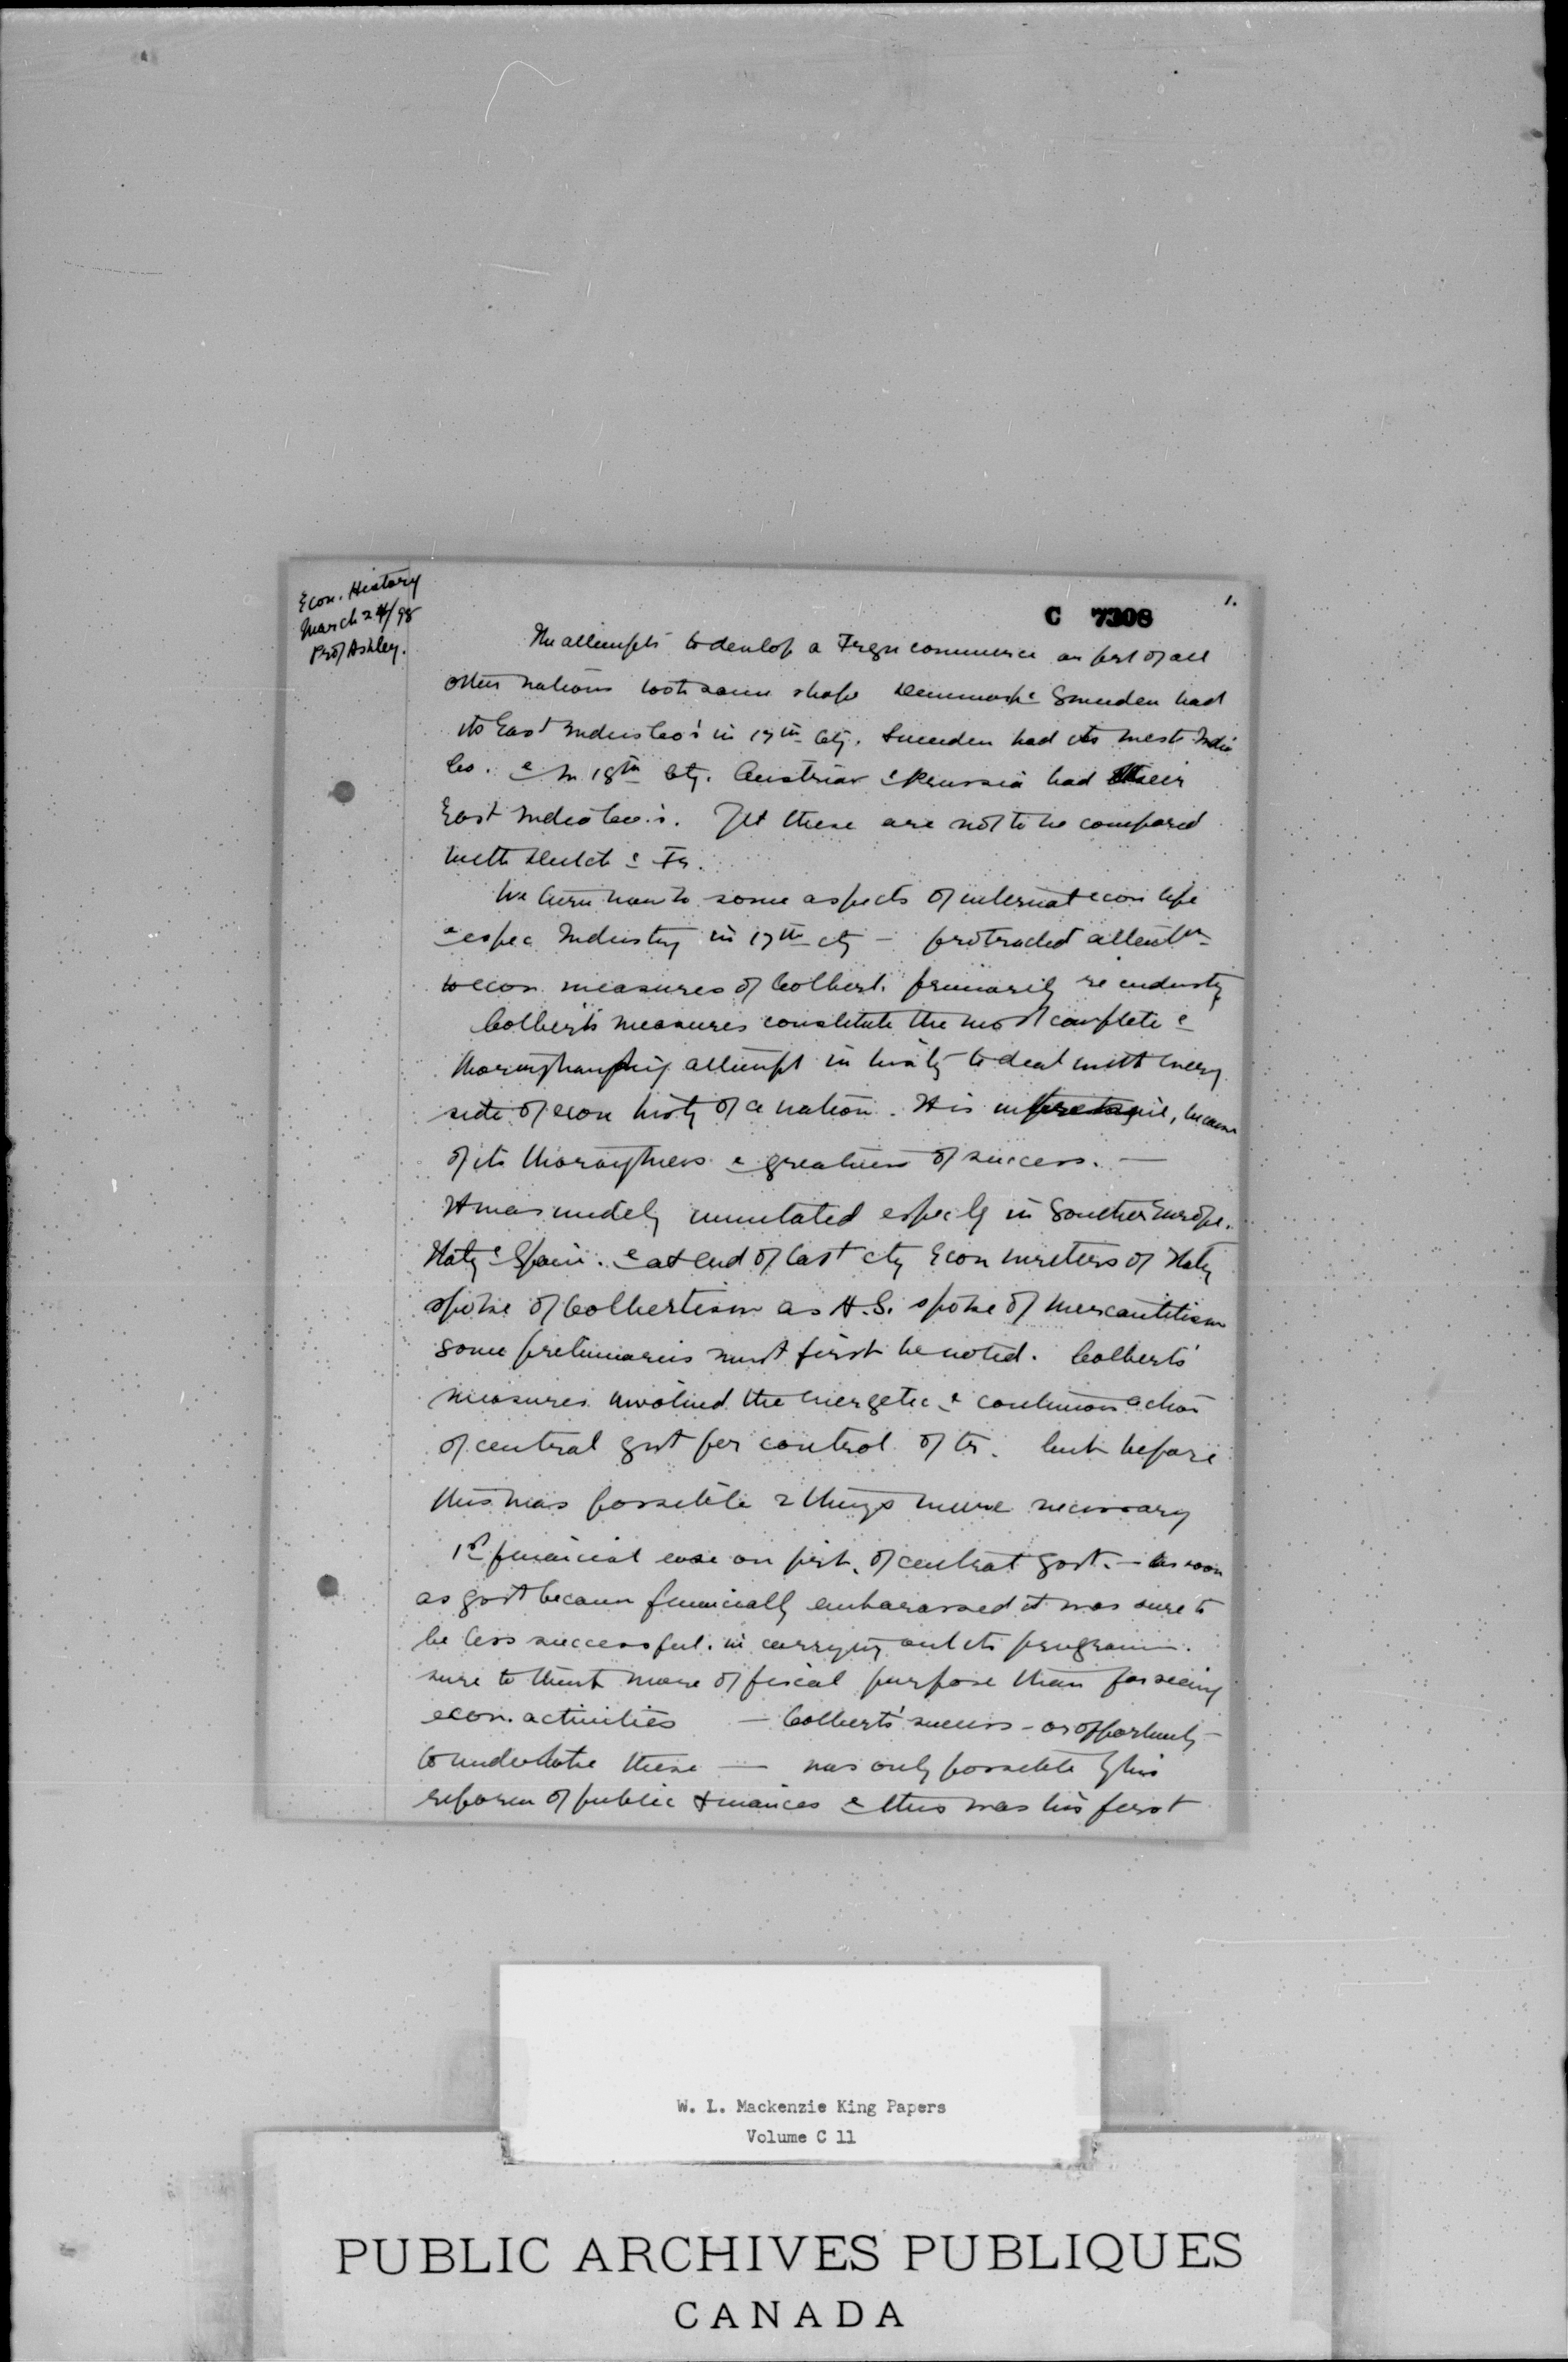 Econ. History
March 24/98
Prof Ashley.
1.
C 7308
The attempts to develop a Fregn commerce on part of all
other nations took same shape Denmark & Sweden had
its East Indies Co's in 17th Cty. Sweden had its West India
Co. & in 18th Cty. Austria & Prussia had their
East India Co.'s. Yet these are not to be compared
with Dutch & Fr.
We turn now to some aspects of internat econ life
& espec Industry in 17th cty – protracted attentn
to econ measures of Colbert. primarily re industy
Colbert's measures constitute the most complete &
thoroughgoing attempt in histy to deal with every
side of econ histy of a nation. It is because
of its thoroughness & greatness of success. —
It was widely immitated especly in Souther Europe.
Italy & Spain. & at end of last cty Econ writers of Italy
spoke of Colbertism as A.S. spoke of mercantilism
some preliminaries must first be noted. Colberts'
measures involved the energetic & continuous action
of central govt for control of tr. but before
this was possible 2 things were necessary
1st financial ease on prt. of central govt. – as soon
as govt became financially embarassed it was sure to
be less successful. in carrying out its program.
sure to think more of fiscal purpose than for seeing
econ. activities — Colberts' success – or opportunity –
to undertake these — was only possible by his
reform of public finances & this was his first
W. L. Mackenzie King Papers
Volume C 11
PUBLIC ARCHIVES PUBLIQUES
CANADA